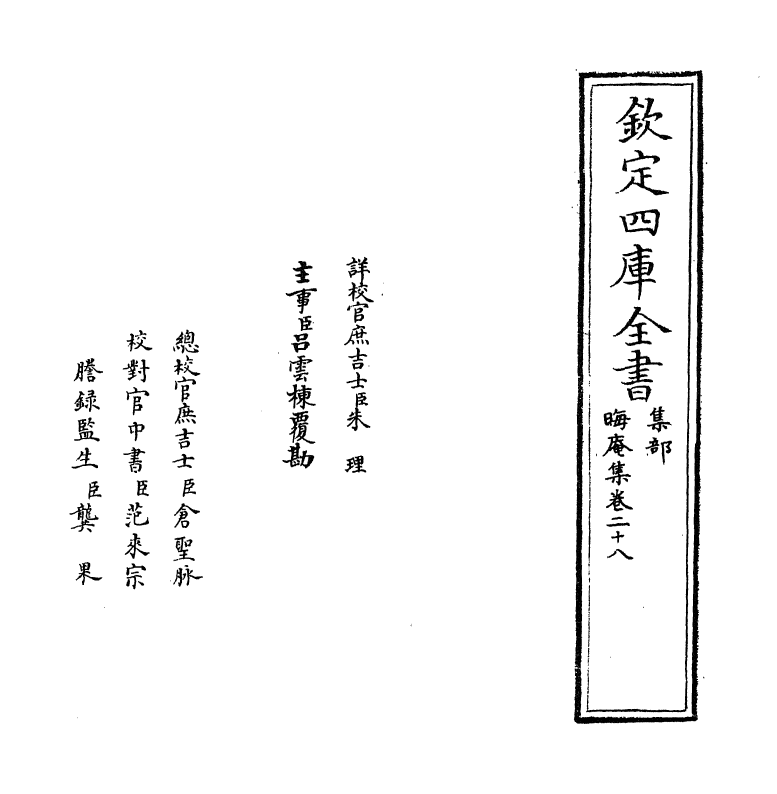 欽定四庫全書
集部
晦庵集卷二十八
詳校官庶吉士臣朱理
主事臣呂雲棟覆勘
總校官庶吉士臣倉聖脉
校對官中書臣范來宗
謄録監生臣龔果